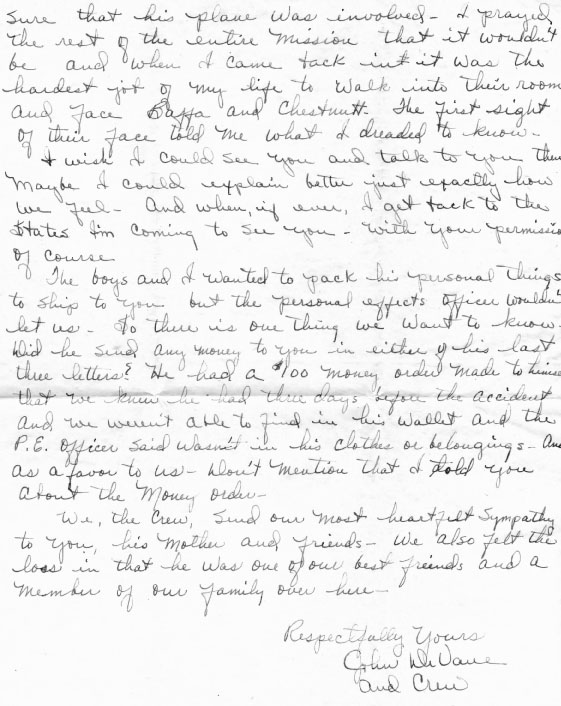 sure that his plane was involved - I prayed
the rest of the entire mission that it wouldn't
be and when I came back in it was the
hardest job of my life to walk into their room
and face Baffa and Chestnutt. The first sight
of their face told me what I dreaded to know -
I wish I could see you and talk to you then
Maybe I could explain better just exactly how
we feel - And when, if ever, I get back to the
States I'm coming to see you - with your permissio
of course
The boys and I wanted to pack his personal things
to ship to you but the personal effects officer wouldn't
let us - So there is one thing we want to know -
Did he send any money to you in either of his last
three letters? He had a $100 money order made to himse
that we know he had three days before the accident
and we weren't able to find in his wallet and the
P.E. Officer said wasn't in his clothes or belongings - And
as a favor to us - Don't mention that I told you
about the Money order -
We, the Crew, send our most heartfelt sympathy
to you, his Mother and friends - We also felt the
loss in that he was one of our best friends and a
member of our family over here -
Respectfully Yours
John DeVane
and Crew